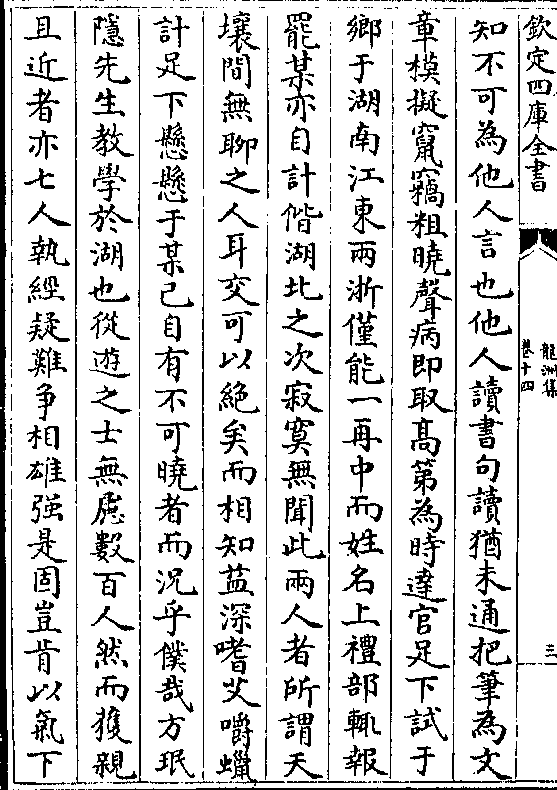 欽定四庫全書
龍洲集
卷十四
三
知不可為他人言也他人讀書句讀猶未通把筆為文
章模擬竄竊粗曉聲病即取髙第為時達官足下試于
鄉于湖南江東兩浙僅能一再中而姓名上禮部輙報
罷某亦自計偕湖北之次寂寞無聞此兩人者所謂天
壤間無聊之人耳交可以絶矣而相知益深嗜艾嚼蠟
計足下懸懸于某已自有不可曉者而況乎僕哉方珉
隱先生教學於湖也從遊之士無慮數百人然而獲親
且近者亦七人執經疑難爭相雄强是固豈肯以氣下